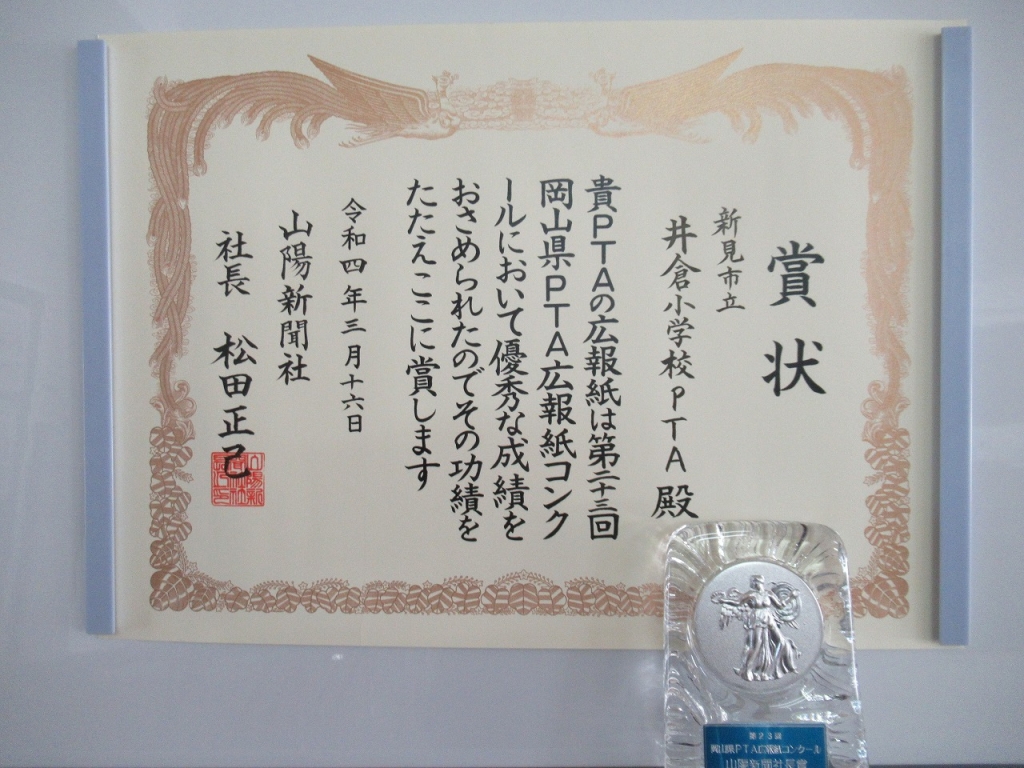 賞状
新見市立
井倉小学校PTA殿
貴PTAの広報紙は第二十三回
岡山県PTA広報紙コンク
ールにおいて優秀な成績を
おさめられたのでその功績を
たたえここに賞します
令和四年三月十六日
山陽新聞社
社長 松田正己
第23回
岡山県PTA広報紙コンクール
山陽新聞社長賞